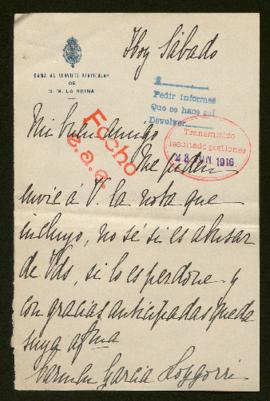 Hoy Sábado
DAMA AL SERVICIO PARTICULAR
DE
S. M. LA REINA
Pedir informes
Que se hace así
Devolver
Mi buen amigo
Hecho
Transmitido
resultado gestiones
23 JUN 1916
Me piden
envie á V. la nota que
incluyo, no sé si es abusar
de Vds, si lo es perdone y
con gracias anticipadas queda
suya afma
Carmen García Loygorri